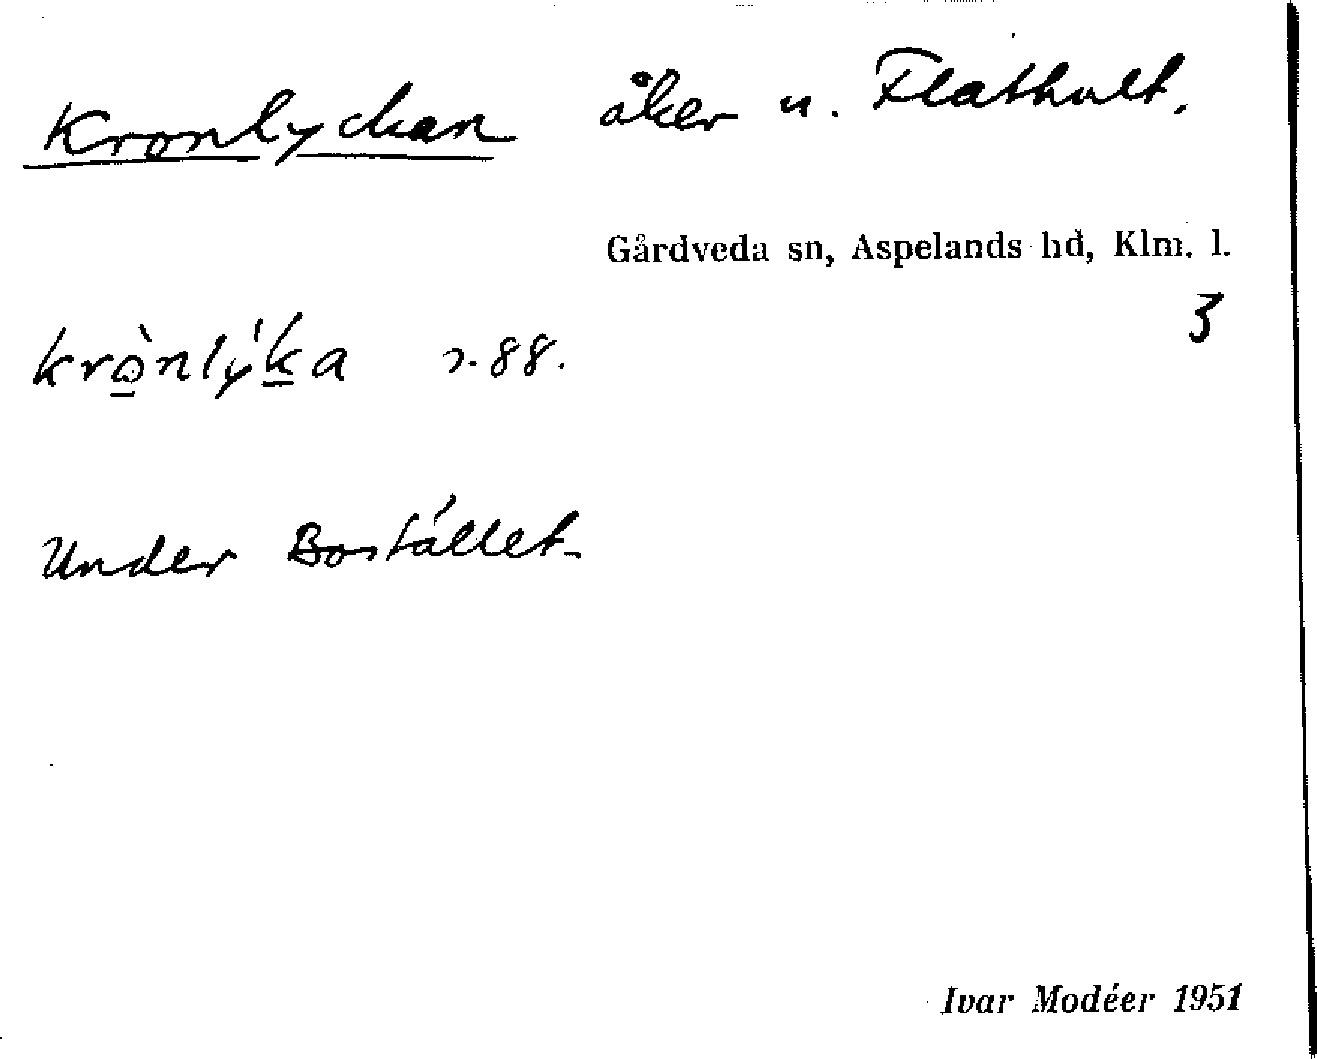 Kronlyckan åker u. Flathult.
Gårdveda sn, Aspelands hd, Klm. l.
3
krò̱nlý̍ḵa 88.
Under Bostället
Ivar Modéer 1951